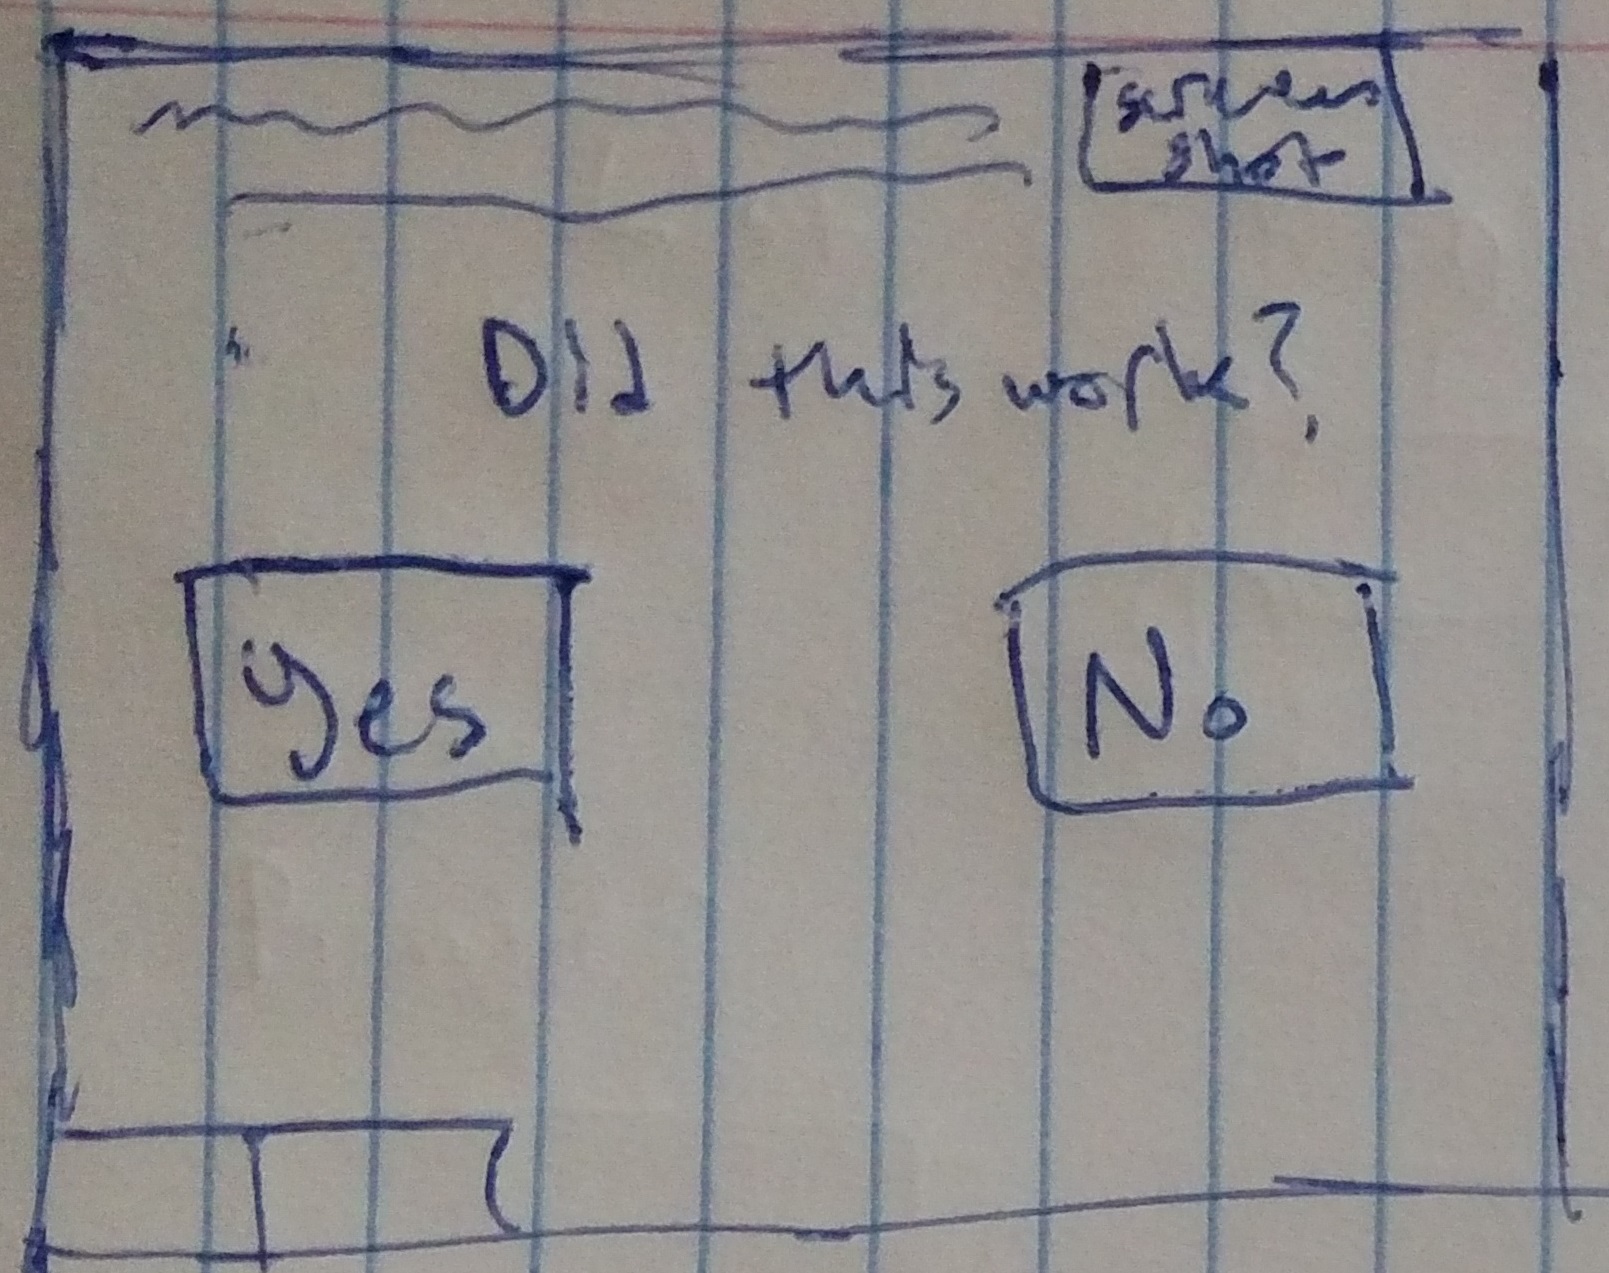 screen
shot
Did this work?
Yes
No